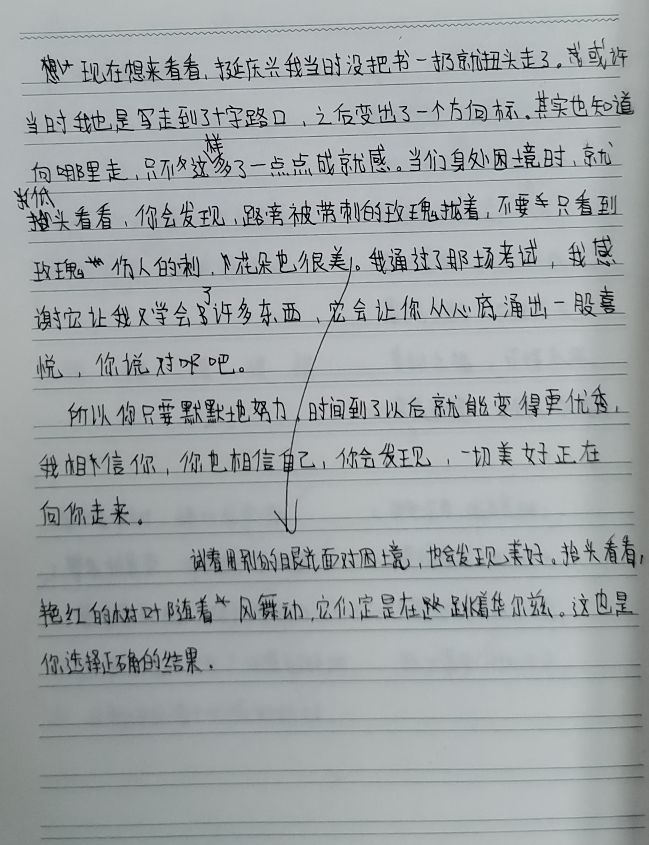 现在想来看看，挺庆兴我当时没把书一扔就扭头走了。或许
当时我也是走到了十字路口，之后变出了一个方向标。其实也知道
向哪里走，只不过这样多了一点点成就感。当们身处困境时，就
低头看看，你会发现，路旁被带刺的玫瑰拦着，不要只看到
玫瑰伤人的刺，花朵也很美。我通过了那场考试，我感
谢它让我又学会了许多东西，它会让你从心底涌出一股喜
悦，你说对吧。
所以你只要默默地努力，时间到了以后就能变得更优秀，
我相信你，你也相信自己，你会发现，一切美好正在
向你走来。
试着用别的眼光面对困境，也会发现美好。抬头看看，
艳红的树叶随着风舞动，它们定是在跳着华尔兹。这也是
你选择正确的结果。